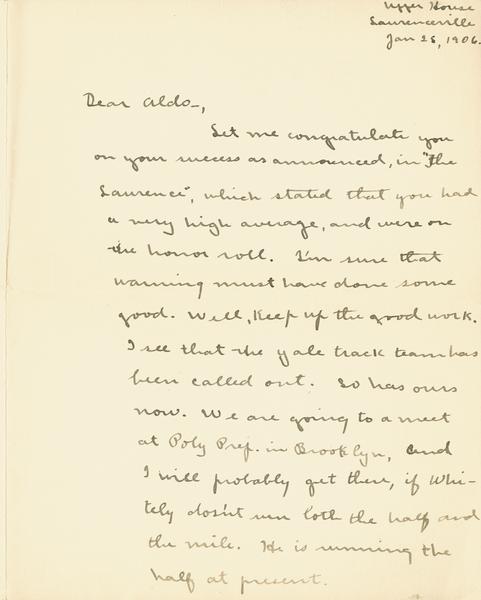 Upper House
Lawrenceville
Jan 25, 1906.
Dear Aldo-,
Let me congratulate you
on your success as announced, in "the
Lawrence", which stated that you had
a very high average, and were on
the honor roll. I'm sure that
warning must have done some
good. Well, Keep up the good work.
I see that the Yale track team has
been called out. So has ours
now. We are going to a meet
at Poly Prep. in Brooklyn, and
I will probably get there, if Whi-
tely dosn't run both the half and
the mile. He is running the
half at present.